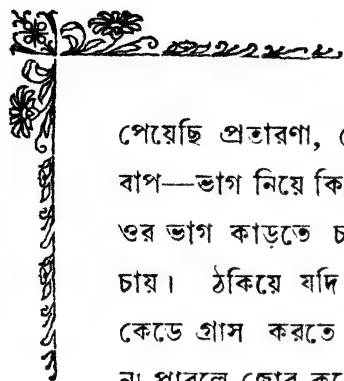 পেয়েছি প্রতারণা,
বাপ—ভাগ নিয়ে কি
ওর ভাগ কাড়তে চ
চায়। ঠকিয়ে যদি
কেড়ে গ্রাস করতে
না পারলে জোর